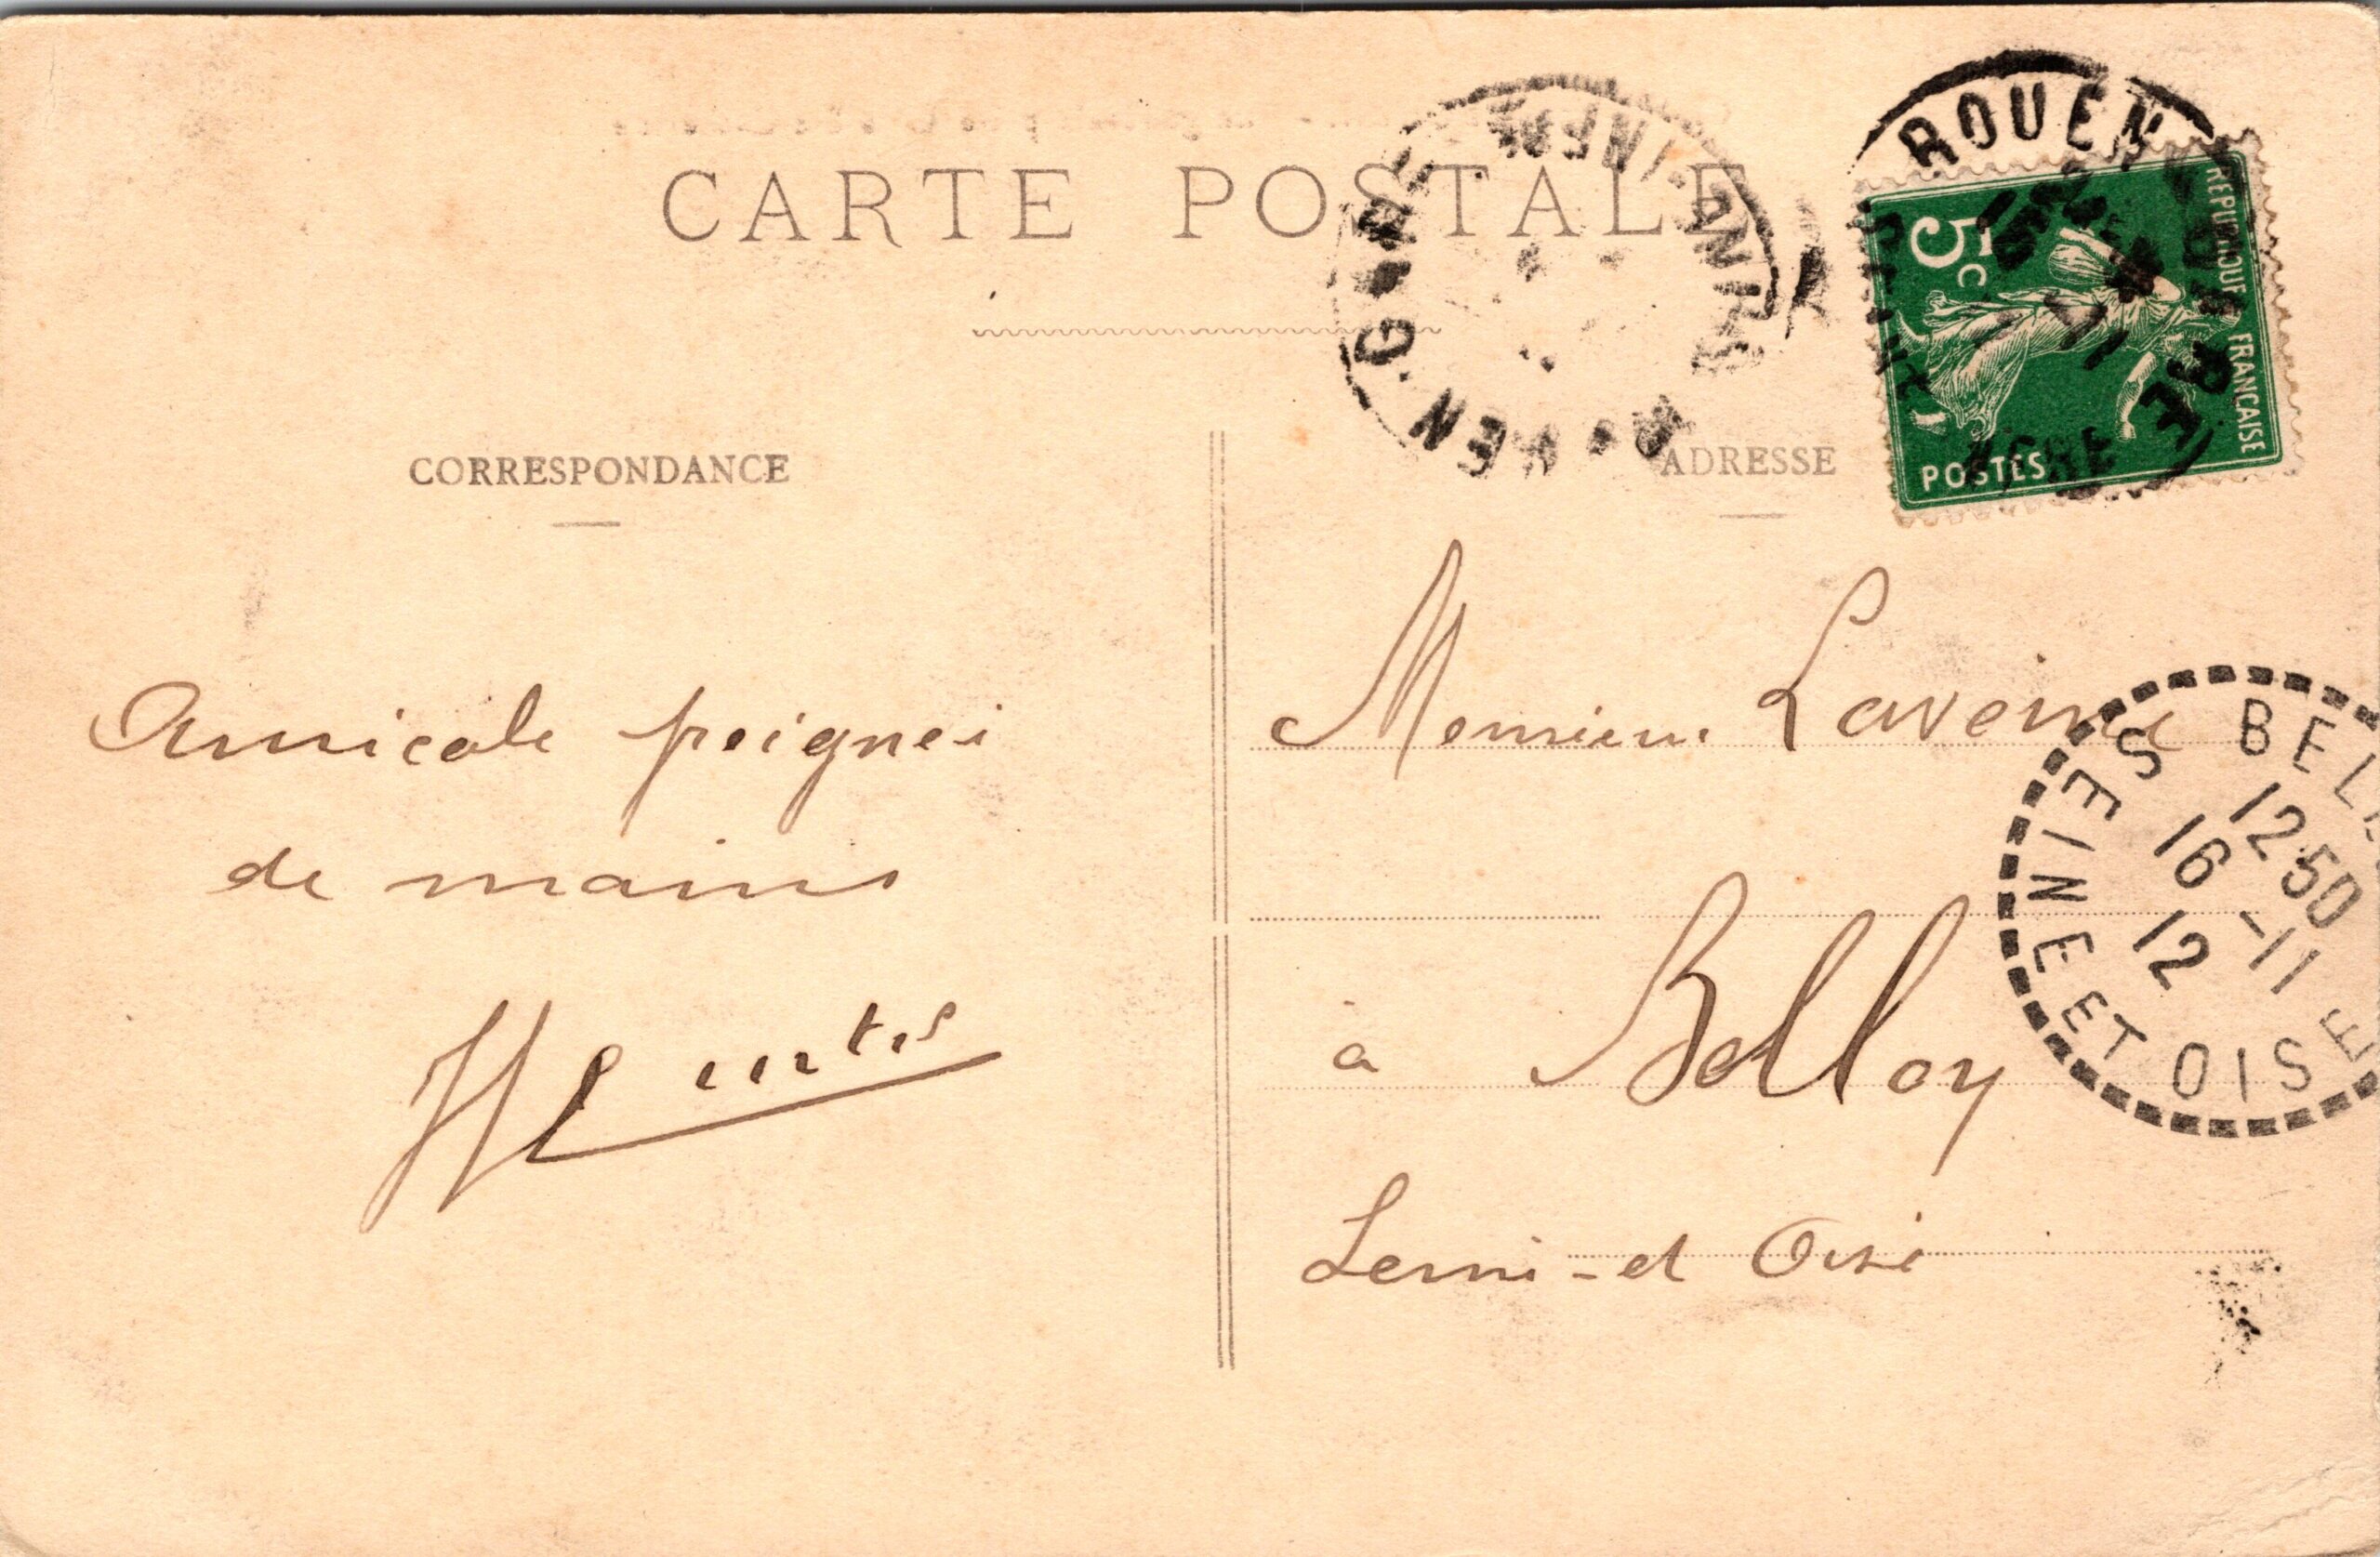 CARTE POSTALE
CORRESPONDANCE
ADRESSE
ROUEN
GARE
5c
REPUBLIQUE FRANCAISE
POSTES
ROUEN GARE
SEINE INFRE
Amicale poignée
de mains
Monsieur
à Belloy
Seine-et Oise
BEL
12 50
16 -11
12
SEINE ET OISE